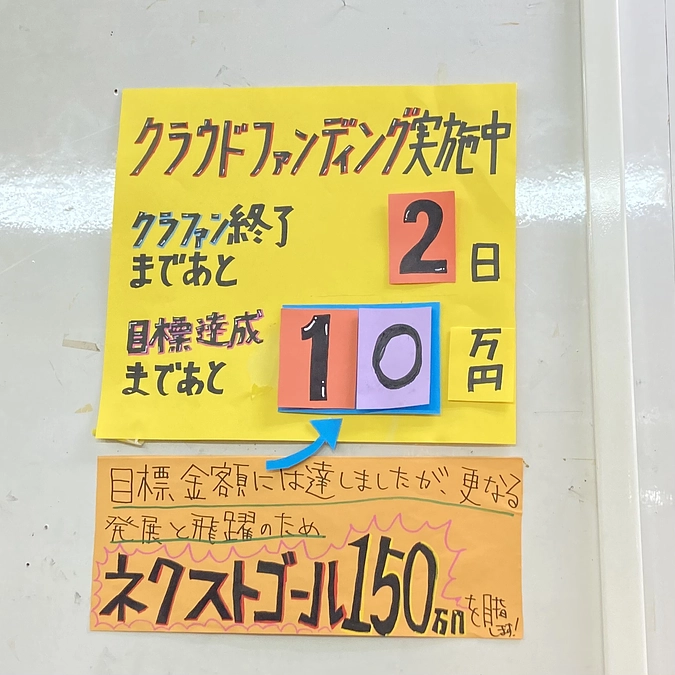 クラウドファンディング実施中
クラファン終了
まであと
2日
目標達成
まであと
10万円
目標金額には達しましたが、更なる
発展と飛躍のため
ネクストゴール150万円を目指します!